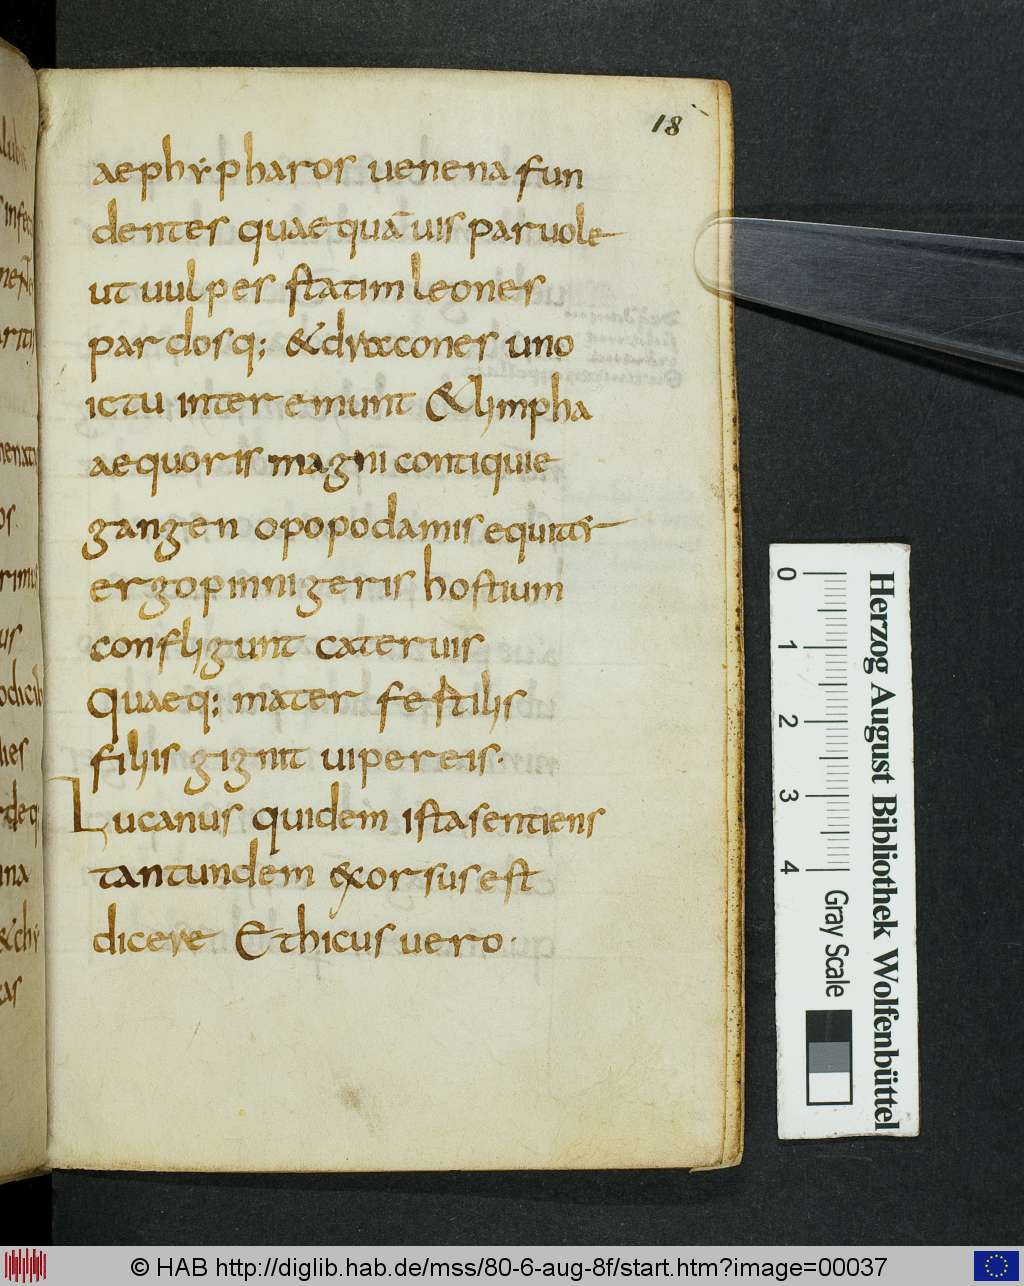 18
aephẏpharos uenena fun
dentes quaequa᷄ uis paruole
ut uulpes statim leones
pardosq; & dracones uno
ictu interemunt & limpha
aequoris magni contiquie
gangen opopodamis equitis
ergo pinnigeris hostium
confligunt cateruis
Quaeq; mater festilis
filiis gignit uipereis.
Lucanus quidem ista sentiens
tantundem exorsus est
dicere Ethicus uero.
0 1 2 3 4 Gray Scale
Herzog August Bibliothek Wolfenbüttel
© HAB http://diglib.hab.de/mss/80-6-aug-8f/start.htm?image=00037